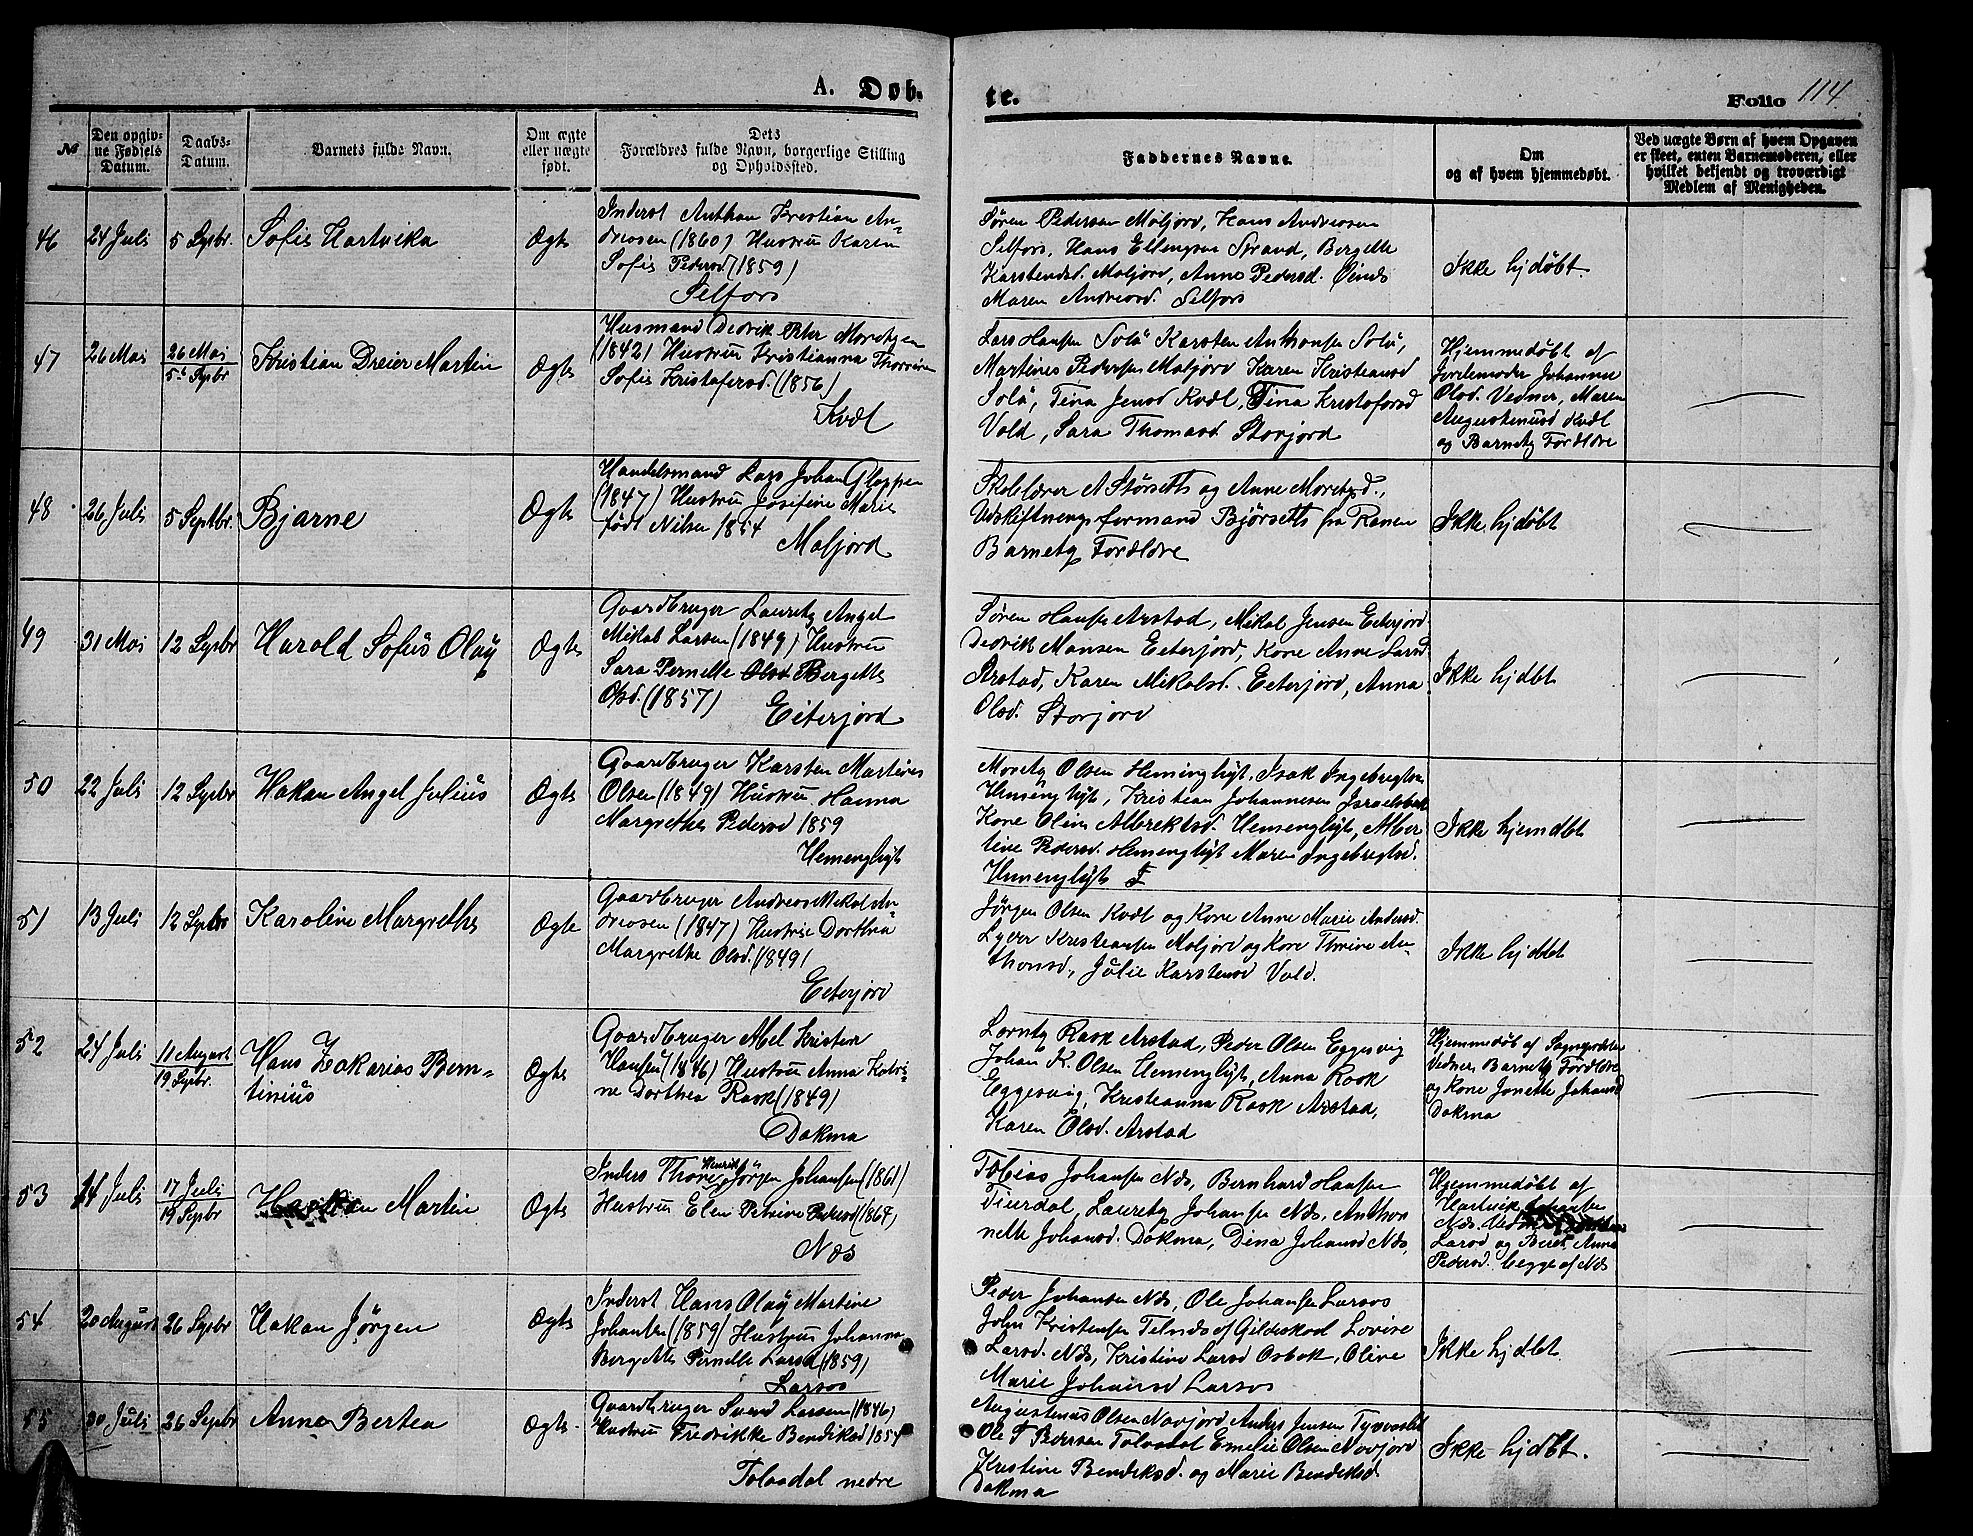 A. Døb-
te.
Folio 114
№
Den opgiv-
ne Fødsels
Datum.
Daabs-
Datum.
Barnets fulde Navn.
Om ægte
eller uægte
født.
Dets
Forældres fulde Navn, borgerlige Stilling
og Opholdssted.
Faddernes Navne.
Om
og af hvem hjemmedøbt.
Ved uægte Børn af hvem Opgaven
er skeet, enten Barnemoderen, eller
hvilket bekjendt og troværdigt
Medlem af Menigheden.
46
24 Juli
5 Sepbr.
Sofie Hartvika
Ægte
Inderst Anthon Krestian An-
dreasen (1860) Hustru Karen
Sofie Pedersd (1859)
Selfors
Søren Pedersen Moljord, Hans Andreasen
Selfors, Hans Ellengsen Strand, Bergette
Karstensd. Moljord, Anne Pedersd.
Maren Andreasd. Selfors
Ikke hjdøbt
47
26 Mai
26 Mai
5t Sepbr
Kristian Dreier Martin
Ægte
Husmand Dedrik Peter Moretsen
(1842) Hustru Kristianna
Sofie Kristofersd. (1856)
Kvæl
Lars Hansen Solø Karsten Anthonsen Solø,
Martines Pedersen Moljord Karen Kristiansd
Solø, Tina Jensd Kvæl, Tina Kristofersd
Vold, Sara Thomasd. Storjord
Hjemmedøbt af
Jordemoder Johanne
Olsd. Vedner, Maren
Augustinusd Kvæl
og Barnets Forældre
48
26 Juli
5 Septbr.
Bjarne
Ægte
Handelsmand Lars Johan Gloppen
(1847) Hustru Josefine Marie
født Nilsen 1854
Moljord
Skolelærer A Størseth og Anne Moretsd.,
Udskiftningsformand Bjørseth fra Ranen
Barnets Forældre
Ikke hjdøbt
49
31 Mai
12 Sepbr
Harald Sofus Olay
Ægte
Gaardbruger Lauretz Angel
Mikal Larsen (1849) Hustru
Sara Pernelle Olsd Bergette
Olsd. (1857)
Eiterjord
Søren Hansen Arstad, Mikal Jensen Eiterjord
Dedrik Monsen Eiterjord, Kone Anne Larsd
Arstad, Karen Mikalsd. Eiterjord, Anna
Olsd. Storjord
Ikke hjdbt
50
22 Juli
12 Sepbr
Hakan Angel Julius
Ægte
Gaardbruger Karsten Martines
Olsen (1849) Hustru Hanna
Margrethe Pedersd 1859
Hemenglyt
Moretz Olsen Hemenglyt, Isak Ingebregtsen
Hemenglyt, Kristian Johannesen Israelsbak
Kone Oline Albrektsd. Hemenglyt, Alber
tine Pedersd. Hemenglyt Maren Ingebregtsd.
Hemenglyt
Ikke hjemdbt
51
13 Juli
12 Sepbr
Karoline Margrethe
Ægte
Gaardbruger Andreas Mikal An-
dreasen (1847) Hustru Dorthea
Margrethe Olsd. (1849)
Eiterjord
Jørgen Olsen Kvæl og Kone Anne Marie Andersd.
Lyder Kristiansen Moljord og Kone Thrine An-
thonsd, Julie Karstensd Vold.
Ikke hjdbt
52
24 Juli
11 August
19 Sepbr.
Hans Zakarias Bern-
tinius
Ægte
Gaardbruger Abel Kristen
Hansen (1846) Hustru Anna Katri-
ne Dorthea Rask (1849)
Dokma
Lorntz Rask Arstad, Peder Olsen Eggesvig
Johan K. Olsen Hemenglyt, Anna Rask
Eggesvig, Kristianna Rask Arstad,
Karen Olsd. Arstad
Hjemmedøb af Sognepresten
Vedner Barnets Forældre
og Kone Jonette Johansd
Dokma
53
14 Juli
17 Juli
19 Sepbr
Martin
Ægte
Inders Thore Henrik Jørgen Johansen (1861)
Hustru Elen Petrine Pedersd (1864)
Næs
Tobias Johansen Næs, Bernhard Hansen
Tverdal, Lauretz Johansen Næs, Anthon
nette Johansd. Dokma, Dina Johansd Næs,
Hjemmedøbt af
Hartvik Johansen
Næs. Vedner
Larsd og Beret Anna
Pedersd. begge af Næs
54
20 August
26 Sepbr
Hakan Jørgen
Ægte
Inderst Hans Olay Martin
Johansen (1859) Hustru Johanna
Bergette Pernelle Larsd (1859)
Larsos
Peder Johansen Næs, Ole Johansen Larsos
John Kristensen Telnæs af Gildeskaal Lovise
Larsd. Næs, Kristine Larsd Osbak, Oline
Marie Johansd Larsos
Ikke hjdbt
55
30 Juli
26 Sepbr
Anna Bertea
Ægte
Gaardbruger Svend Larsen (1846)
Hustru Fredrikke Bendiksd 1854
Tollaadal nedre
Augustenus Olsen Navjord Anders Jensen
Ole T Berssen Tollaadal Emelie Olsen Navjord
Kristine Bendiksd. og Marie Bendiksd
Dokma
Ikke hjdbt.